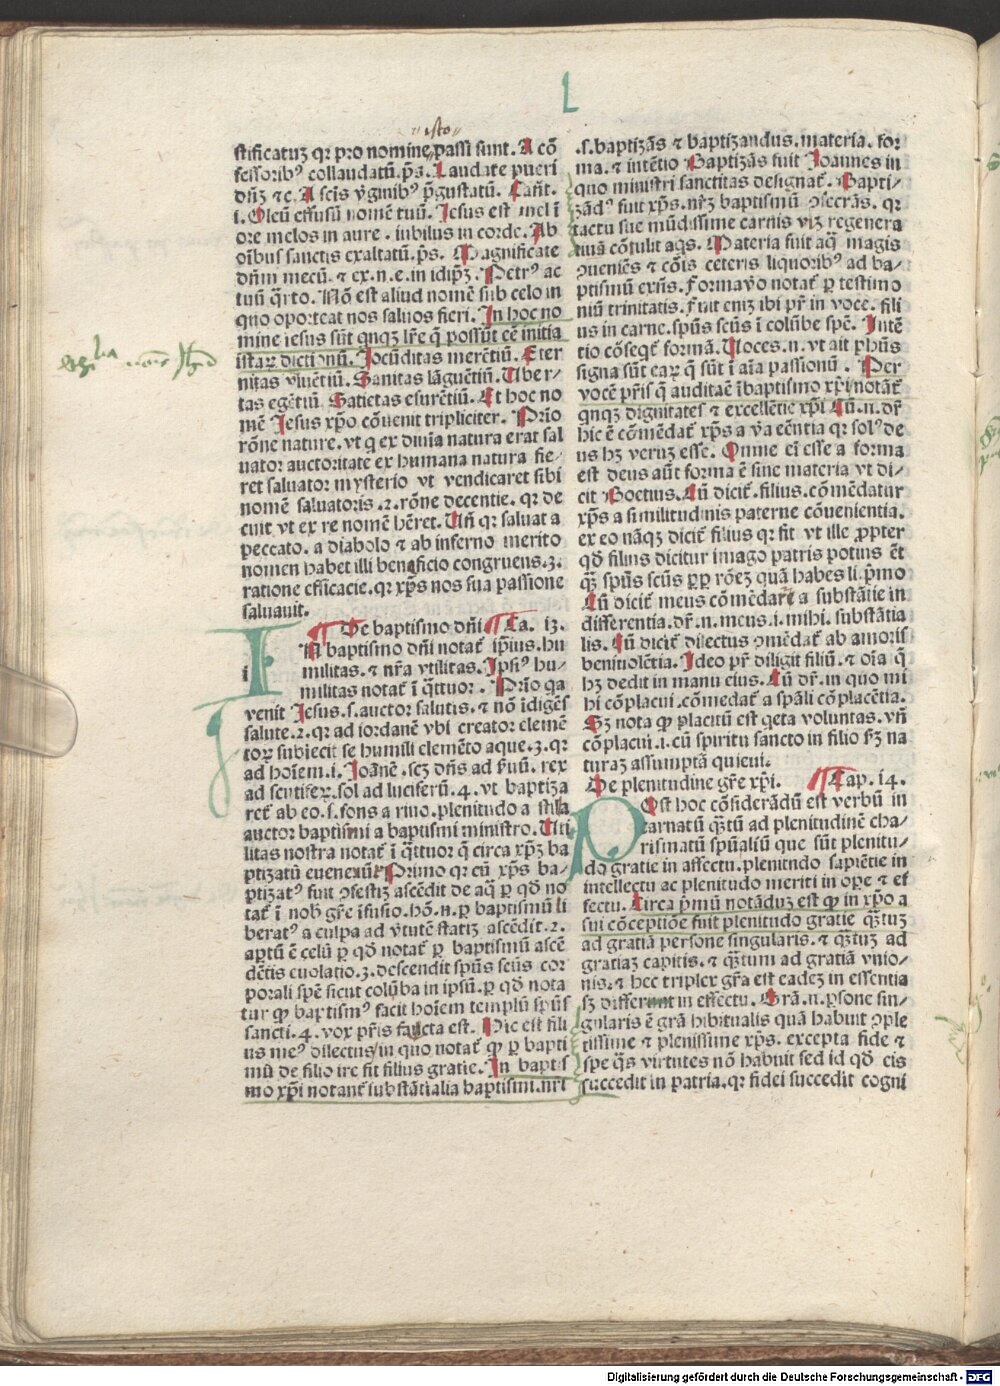 L
"isto"
stificatuꝫ qꝛ pro nomine passi sunt. A cō
fessoribꝰ collaudatū. ps̄. Laudate pueri
dn̄ꝫ ⁊c. A sctīs v̓ginibꝰ p̄gustatū. Cant̄.
i. Oleū effusū nomē tuū. Jesus est mel ī
ore melos in aure. iubilus in corde. Ab
oībus sanctis exaltatū. ps̄. Magnificate
dn̄m mecū. ⁊ ex. n. e. in idip̄ꝫ. Petrꝰ ac
tuū q̄rto. Nō est aliud nomē sub celo in
quo oporteat nos saluos fieri. In hoc no
mine iesus sūt qnqꝫ lr̄e q̄ possūt eē initia
istaꝝ dictionū. Jocūditas merētiū. Eter
nitas viuētiū. Sanitas lāguētiū. Vber⸗
tas egētiū. Satietas esurētiū. Et hoc no
mē Jesus xp̄o cōuenit tripliciter. Prīo
rōne nature. vt q ex diuīa natura erat sal
uator auctoritate ex humana natura fie⸗
ret saluator mysterio vt vendicaret sibi
nomē saluatoris. 2. rōne decentie. qꝛ de
cuit vt ex re nomē hēret. Vn̄ qꝛ saluat a
peccato. a diabolo ⁊ ab inferno merito
nomen habet illi beneficio congruens. 3.
ratione efficacie. qꝛ xp̄s nos sua passione
saluauit.
De baptismo dn̄i Ca. 13.
IN baptismo dn̄i notat̄ ip̄ius. hu
militas. ⁊ nr̄a vtilitas. Ipsiꝰ hu⸗
militas notat̄ ī q̄ttuor. Prīo qa
venit Jesus. s. auctor salutis. ⁊ nō īdigēs
salute. 2. qꝛ ad iordanē vbi creator elemē
toꝝ subiecit se humili elemēto aque. 3. qꝛ
ad hoīem. i. Joānē. scꝫ dn̄s ad s̓uū. rex
ad seruiseꝝ. sol ad luciferū. 4. vt baptiza
ret̄ ab eo. s. fons a riuo. plenitudo a stilla
auctor baptismi a baptismi ministro. Vti
litas nostra notat̄ ī q̄ttuor q̄ circa xp̄ꝫ ba
ptizatū euenerūt Primo qꝛ cū xp̄s ba⸗
ptizatꝰ fuit ꝯfestiꝫ ascēdit de aq̄ ꝑ qd̄ no
tat̄ ī nob̄ gr̄e īfusio. hō. n. ꝑ baptismū li
beratꝰ a culpa ad v̓tutē statiꝫ ascēdit. 2.
aꝑtū ē celū ꝑ qd̄ notat̄ ꝑ baptismū ascē
dētis euolatio. 3. descendit sp̄us scūs cor
porali spē sicut colūba in ipsū. ꝑ qd̄ nota
tur ꝙ baptismꝰ facit hoīem templū sp̄us
sancti. 4. vox pr̄is facta est. Hic est fili
us meꝰ dilectus / in quo notat̄ ꝙ ꝑ bapti
mū de filio ire fit filius gratie. In baptis
mo xp̄i notant̄ substātialia baptismi. nr̄i
.s. baptizās ⁊ baptizandus. materia. for
ma. ⁊ intētio Baptizās fuit Joannes in
quo ministri sanctitas designat̄. Bapti⸗
zādꝰ fuit xp̄s. nr̄ꝫ baptismū ꝯsecrās. qꝛ
tactu sue mūdissime carnis viꝫ regenera
tiuā cōtulit aqs. Materia fuit aq̄ magis
ꝯueniēs ⁊ cōis ceteris liquoribꝰ ad ba⸗
ptismū exn̄s. Forma v̓o notat̄ ꝑ testimo
niū trinitatis. Fuit eniꝫ ibi pr̄ in voce. fili
us in carne. sp̄us scūs ī colūbe spē. Intē
tio cōseqt̄ formā. Voces. n. vt ait ph̄us
signa sūt eaꝝ q̄ sūt ī aīa passionū. Per
vocē pr̄is q̄ auditaē ī baptismo xp̄i notāt̄
qnqꝫ dignitates ⁊ excellētie xp̄i Cū. n. dr̄
hic ē cōmēdat̄ xp̄s a v̓a eēntia qꝛ solꝰ de
us hꝫ veruꝫ esse. Omne eī esse a forma
est deus aūt forma ē sine materia vt di⸗
cit Boetius. Cū dicit̄. filius. cōmēdatur
xp̄s a similitudinis paterne cōuenientia.
ex eo nāqꝫ dicit̄ filius qꝛ fit vt ille ꝓpter
qd̄ filius dicitur imago patris potius ēt
q̄ꝫ sp̄us scūs ꝓꝑ rōeꝫ quā habes li. p̄mo
Cū dicit̄ meus cōmēdat̄ a substātie in
differentia. dr̄. n. meus. i. mihi. substātia
lis. Cū dicit̄ dilectus ꝯmēdat̄ ab amoris
beniuolētia. Ideo pr̄ diligit filiū. ⁊ oīa q̄
hꝫ dedit in manu eius. Cū dr̄. in quo mi
hi cōplacui. cōmedat̄ a spāli cōplacētia.
Sꝫ nota ꝙ placitū est qeta voluntas. vn̄
cōplacui. i. cū spiritu sancto in filio sꝫ na
turaꝫ assumptā quieui.
De plenitudine gr̄e xp̄i. Cap. 14.
POst hoc cōsiderādū est verbū in
carnatū q̄ꝫtū ad plenitudinē cha⸗
rismatū sp̄ualiū que sūt plenitu⸗
do gratie in affectu. plenitndo sapiētie in
intellectu ac plenitudo meriti in oꝑe ⁊ ef
fectu. Circa p̄mū notāduꝫ est ꝙ in xp̄o a
sui cōceptiōe fuit plenitudo gratie q̄ꝫtuꝫ
ad gratiā persone singularis. ⁊ q̄ꝫtuꝫ ad
gratiaꝫ capitis. ⁊ q̄ꝫtum ad gratiā vnio⸗
nis. ⁊ hec triplex gr̄a est eadeꝫ in essentia
sꝫ different in effectu. Grā. n. ꝑsone sin⸗
gularis ē grā hibitualis quā habuit ꝯple
tissime ⁊ plenissime xp̄s. excepta fide ⁊
spe q̄s virtutes nō habuit sed id qd̄ eis
succedit in patria. qꝛ fidei succedit cogni
Digitalisierung gefördert durch die Deutsche Forschungsgemeinschaft - DFG